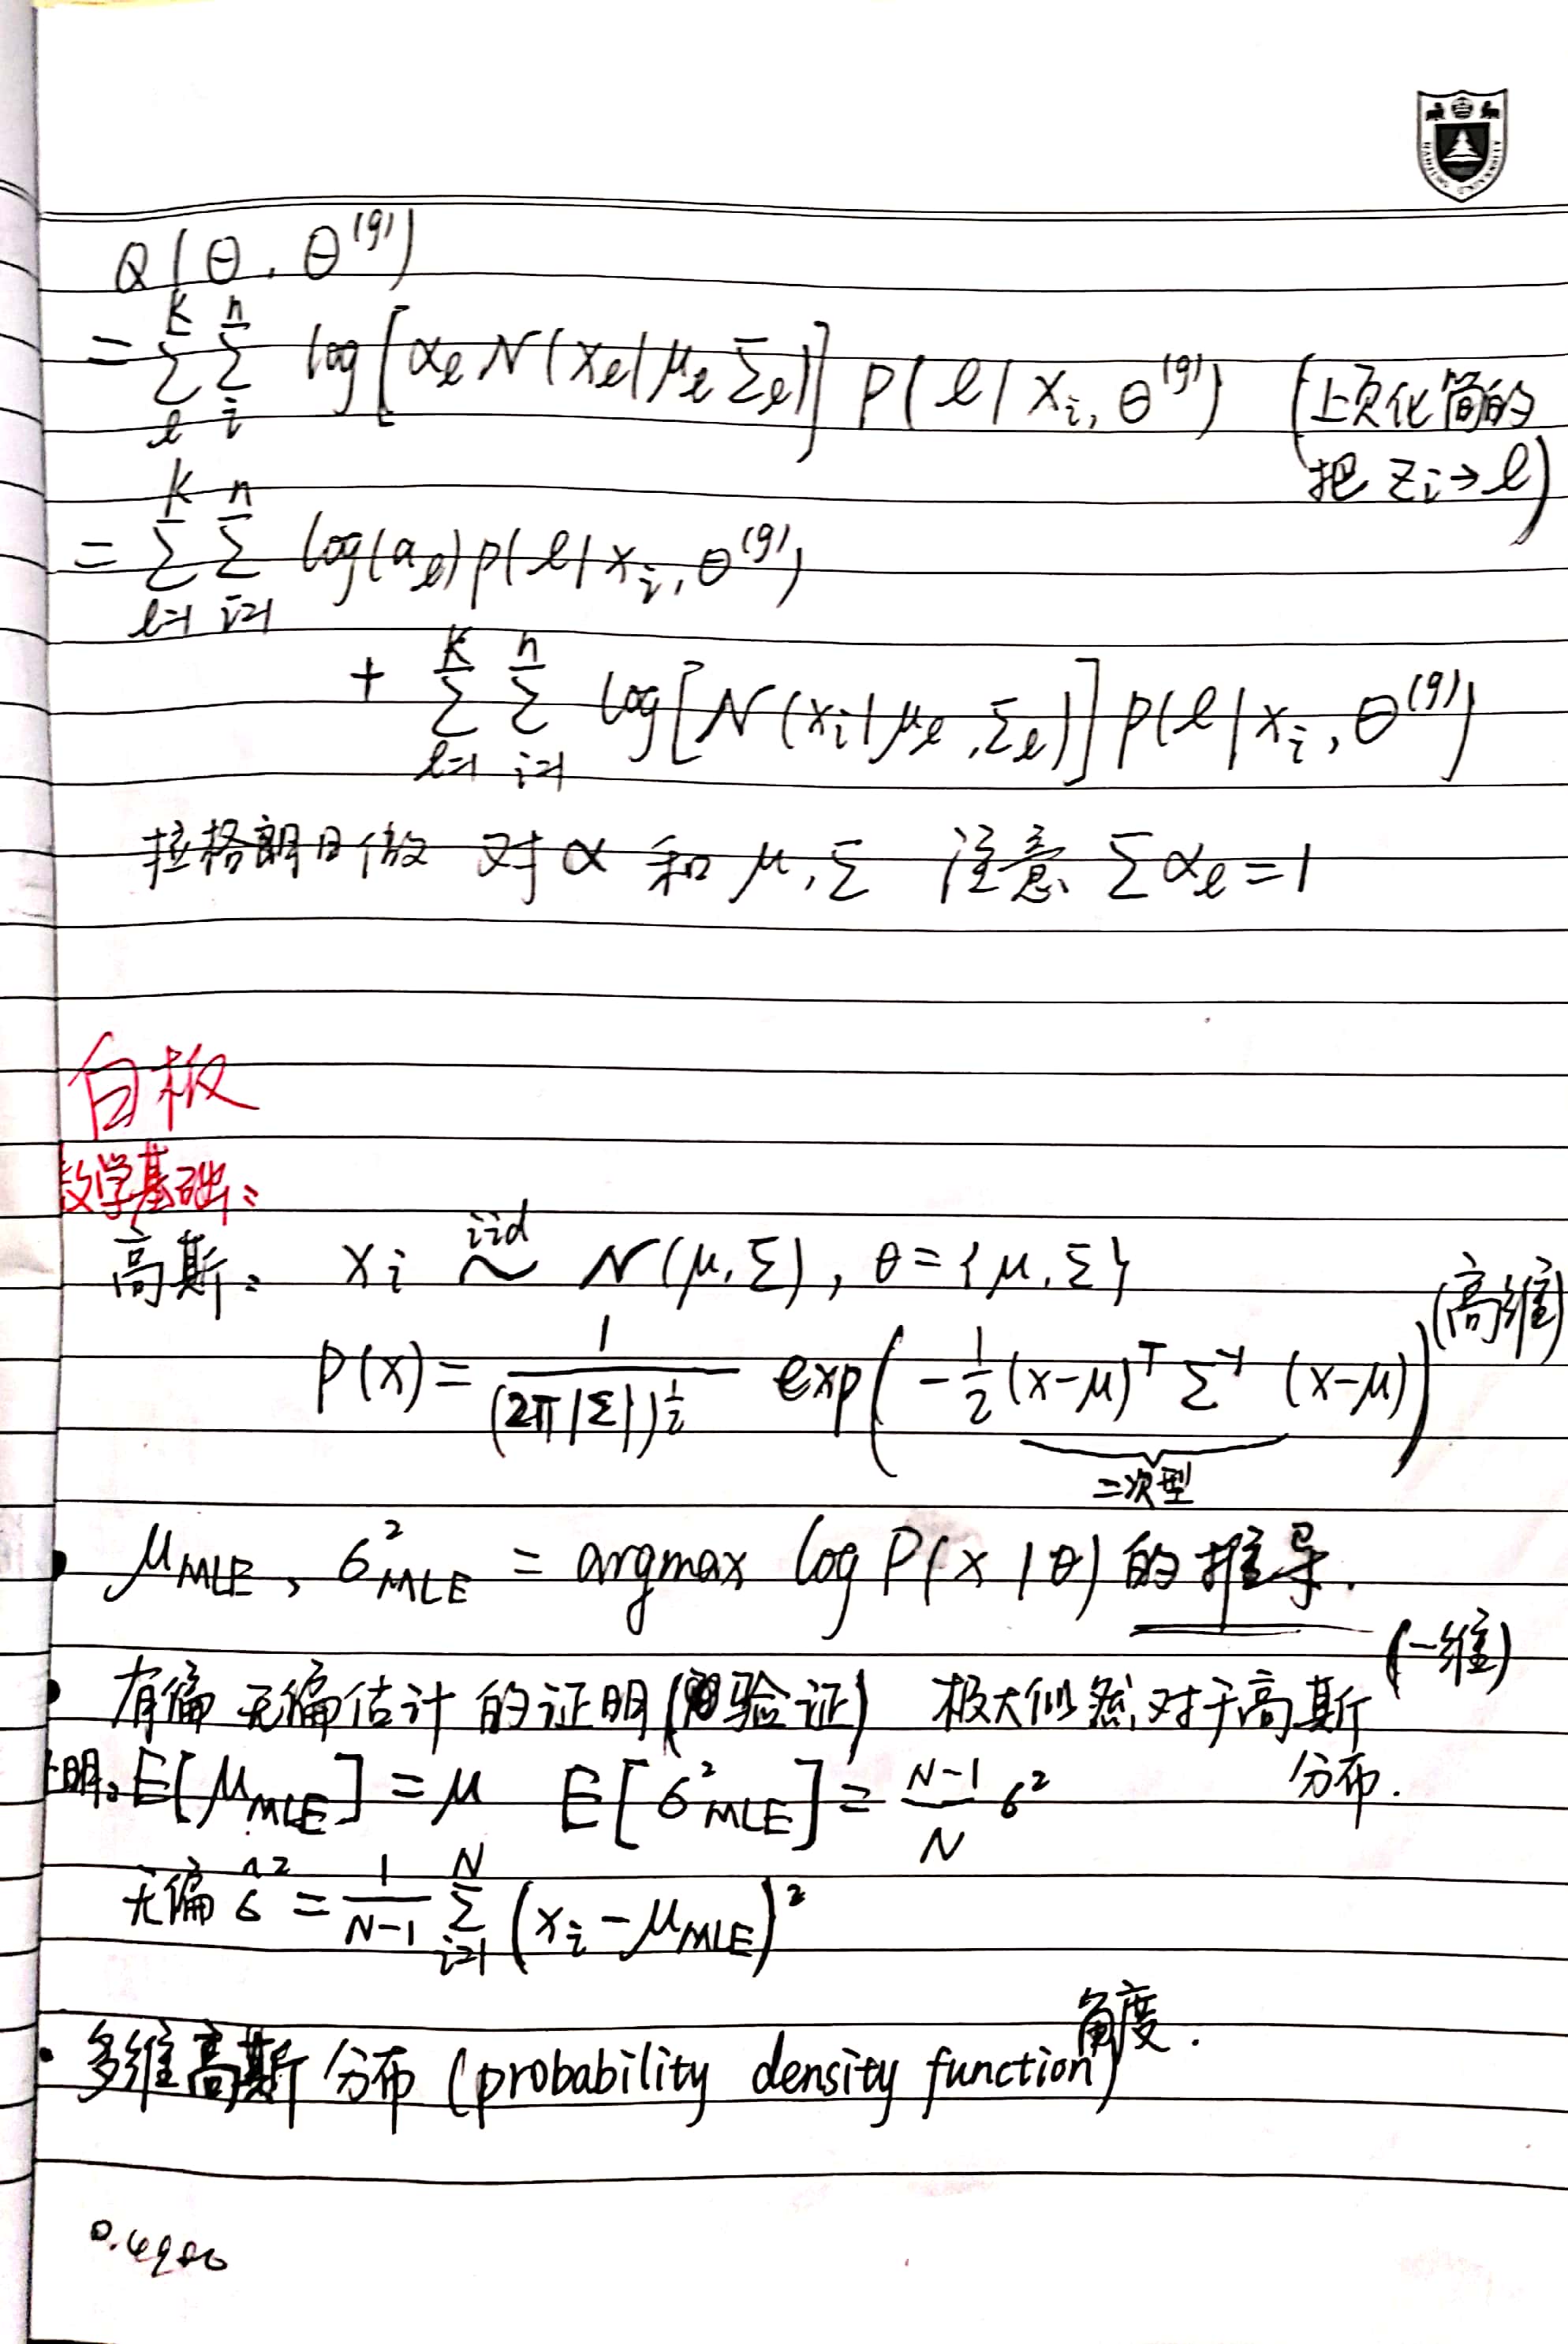 Q(θ, θ^(g))
= Σ_l^K Σ_i^n log[α_l N(x_l|μ_l Σ_l)] P(l|x_i, θ^(g)) (上页化简的
把 z_i→l)
= Σ_{l=1}^K Σ_{i=1}^n log(α_l) p(l|x_i, θ^(g))
+ Σ_{l=1}^K Σ_{i=1}^n log[N(x_i|μ_l, Σ_l)] p(l|x_i, θ^(g))
拉格朗日做 对 α 和 μ, Σ 注意 Σα_l = 1
白板
数学基础:
高斯: x_i ~^{iid} N(μ, Σ), θ = {μ, Σ}
P(x) = 1/(2π|Σ|)^{1/2} exp(-1/2 (x-μ)^T Σ^{-1} (x-μ)) (高维)
二次型
• μ_MLE, σ²_MLE = argmax log P(x|θ) 的推导.
(一维)
• 有偏 无偏估计 的证明 (验证) 极大似然对于高斯
分布.
明: E[μ_MLE] = μ E[σ²_MLE] = (N-1)/N σ²
无偏 σ̂² = 1/(N-1) Σ_{i=1}^N (x_i - μ_MLE)²
• 多维高斯分布 (probability density function) 角度.